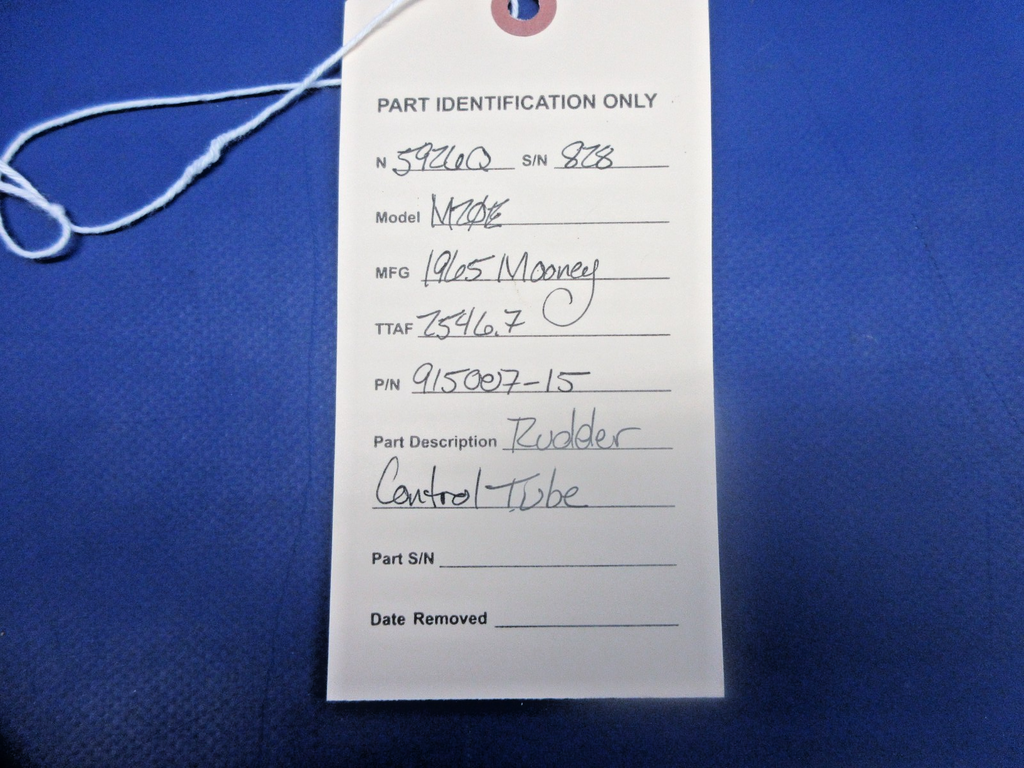 PART IDENTIFICATION ONLY
N 5926Q S/N 828
Model M20E
MFG 1965 Mooney
TTAF 2546.7
P/N 915007-15
Part Description Rudder
Control Tube
Part S/N
Date Removed